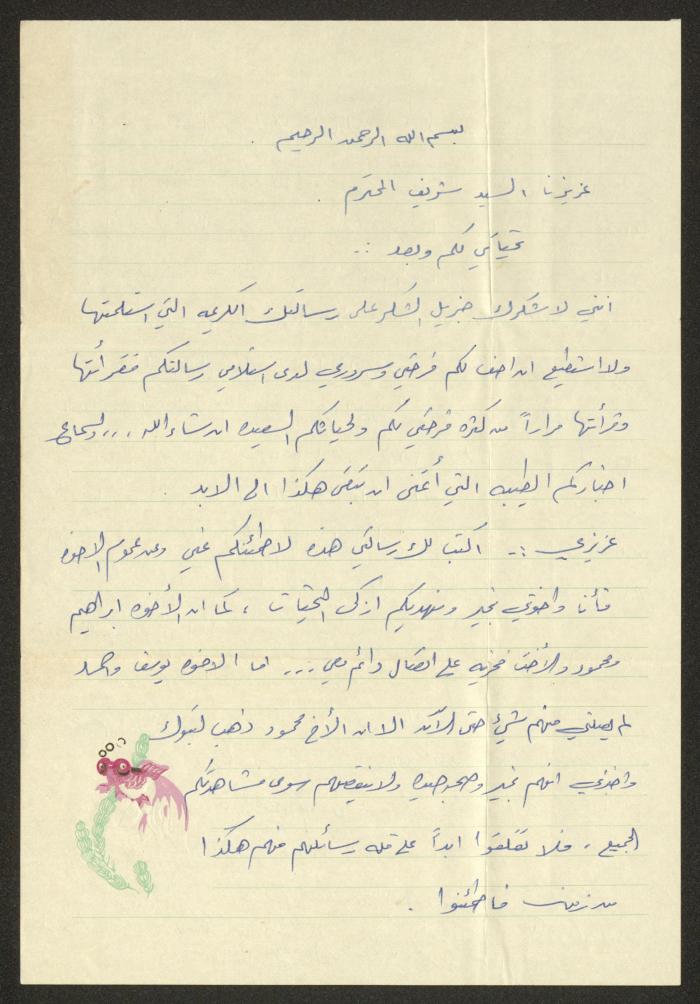 بسم الله الرحمن الرحيم .
عزيزنا السيد شريف المحترم .
تحياتي لكم وبعد :ـ
انني لاشكرك جزيل الشكر على رسالتك الكريمه التي استلمتها
ولا استطيع ان اصف لكم فرحتي وسروري لدى استلامي رسالتكم فقرأتها
وقرأتها مراراً من كثرة فرحتي بكم ولحياتكم السعيده ان شاء الله ... ولسماع
اخباركم الطيبه التي أتمنى ان تبقى هكذا الى الابد .
عزيزي :ـ اكتب لك رسالتي هذه لاطمئنكم عني وعن عموم الاخوه
فأنا واخوتي بخير ونهديكم ازكى التحيات ، كما ان الأخوه ابراهيم
ومحمود والأخت فخريه على اتصال دائم معي ... اما الاخوه يوسف واحمد
لم يصلني منهم شيئ حتى الآن الا ان الأخ محمود ذهب لتبوك
واخبرني انهم بخير وصحه جيده ولا ينقصهم سوى مشاهدتكم
الجميع ، فلا تقلقوا ابداً على قلة رسائلهم فهم هكذا
من زمن فاطمئنوا .